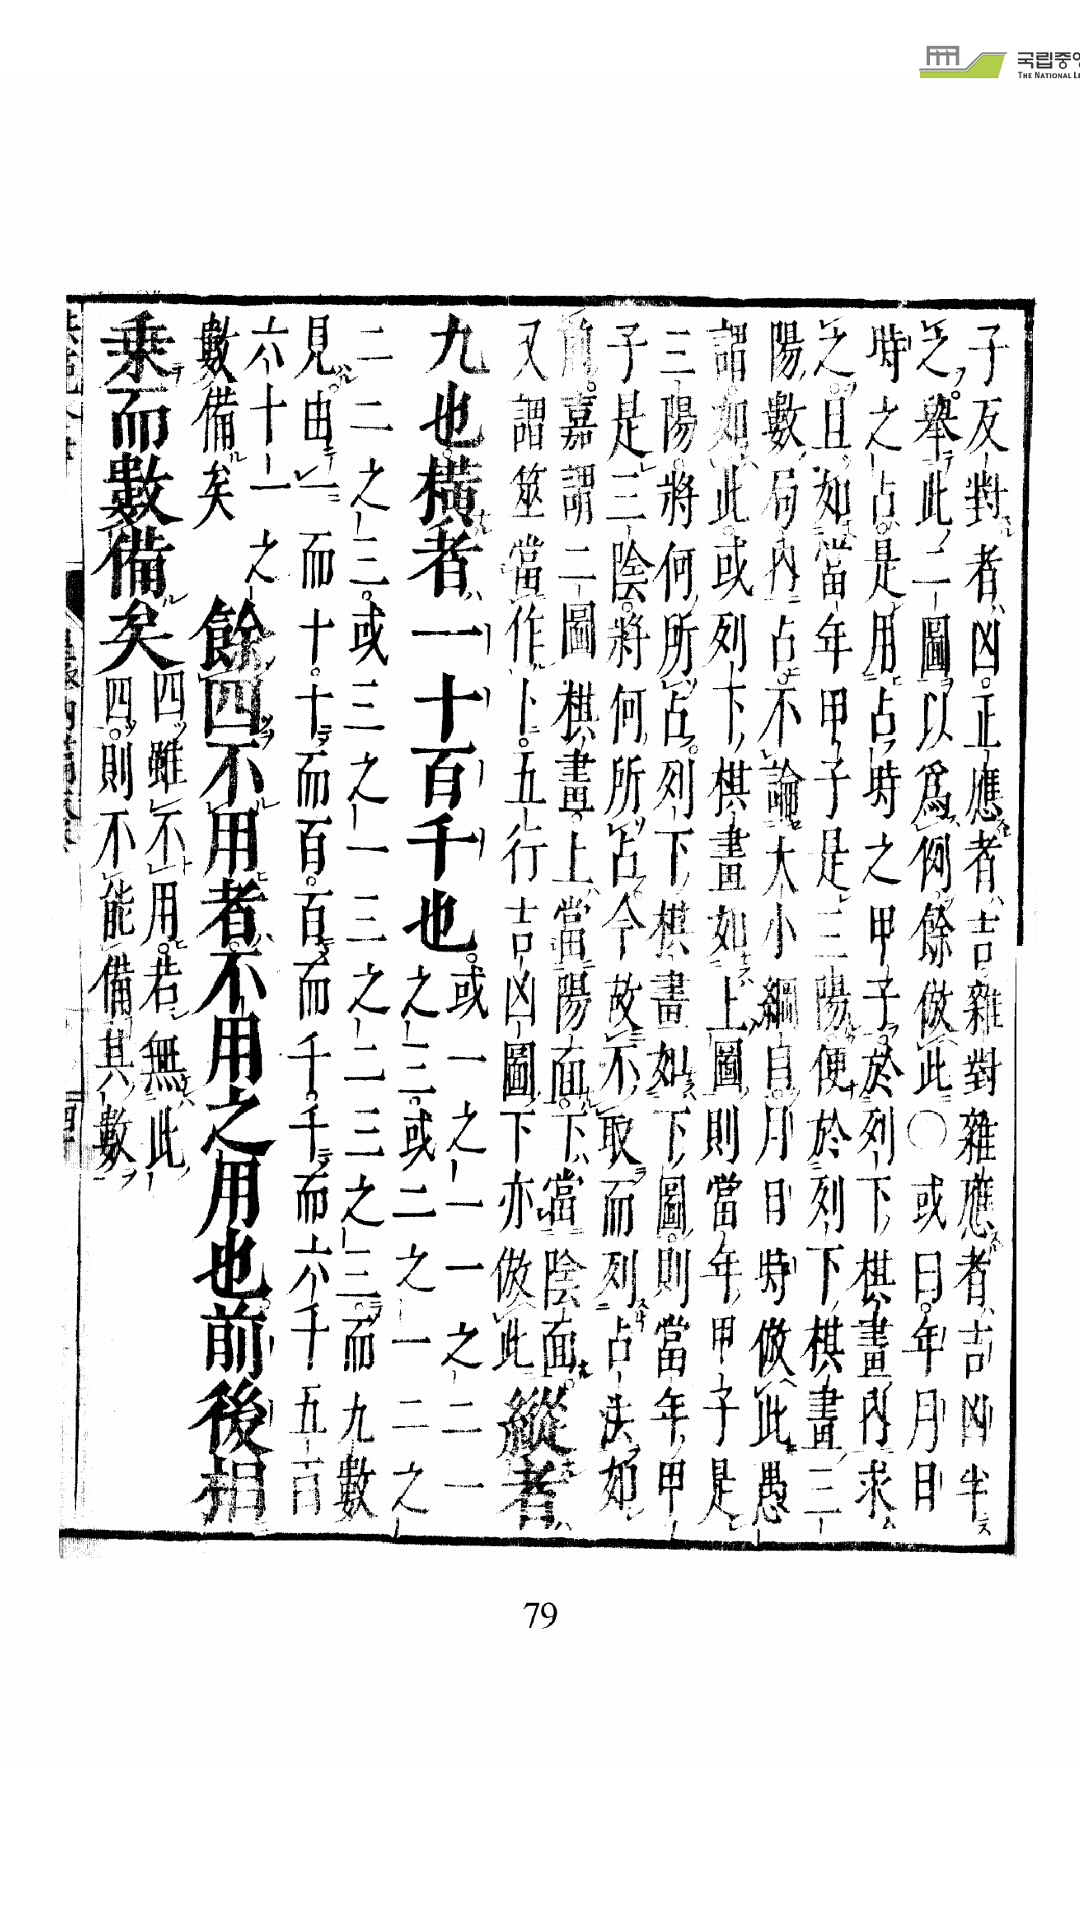 국립중앙
THE NATIONAL L
子反對者凶。正應者吉。雜對雜應者吉凶半
之。舉此二圖以爲例。餘倣此〇或曰。年月日
時之占。是用占時之甲子。於列下棋畫內求
之。且如當年甲子是三陽。便於列下棋畫三
陽數局內占。不論大小綱。自月日時倣此。愚
謂如此。或列下棋畫如上圖。則當年甲子是
三陽。將何所占。列下棋畫如下圖。則當年甲
子是三陰。將何所占。今故不取而列占法如
前。嘉謂二圖棋畫。上當陽面。下當陰面。
又謂筮當作卜。五行吉凶圖下亦倣此
縱者
九也橫者一十百千也。
或一之一一之二一
之三。或二之一二之
二二之三。或三之一三之二三之三。而九數
見。由一而十。十而百。百而千。千而六千五百
六十一之
數備矣
餘四不用者。不用之用也前後相
乘而數備矣
四雖不用。若無此
四。則不能備其數
79